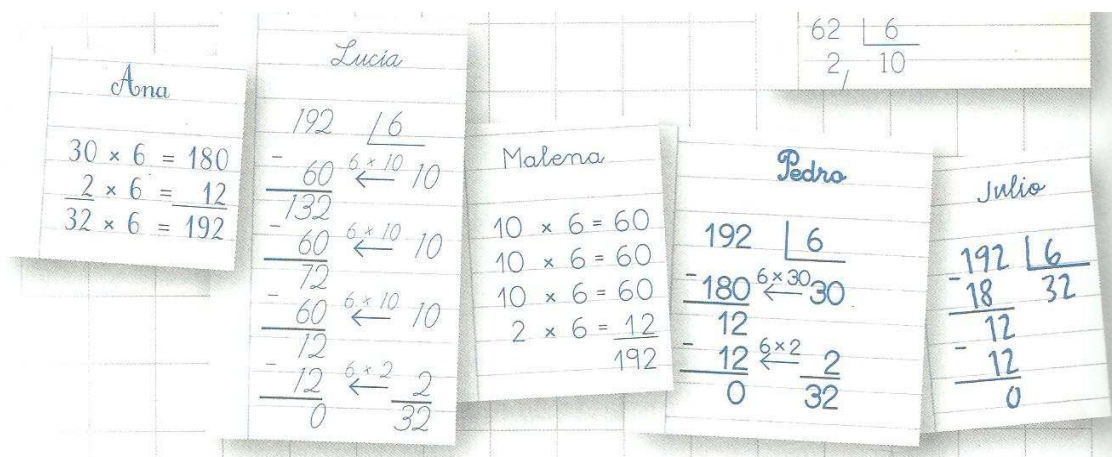 62 | 6
2, 10
Ana
30 × 6 = 180
2 × 6 = 12
32 × 6 = 192
Lucía
192 | 6
- 60 6 × 10 ← 10
132
- 60 6 × 10 ← 10
72
- 60 6 × 10 ← 10
12
- 12 6 × 2 ← 2
0 32
Malena
10 × 6 = 60
10 × 6 = 60
10 × 6 = 60
2 × 6 = 12
192
Pedro
192 | 6
- 180 6 × 30 ← 30
12
- 12 6 × 2 ← 2
0 32
Julio
- 192 | 6
18 32
12
- 12
0